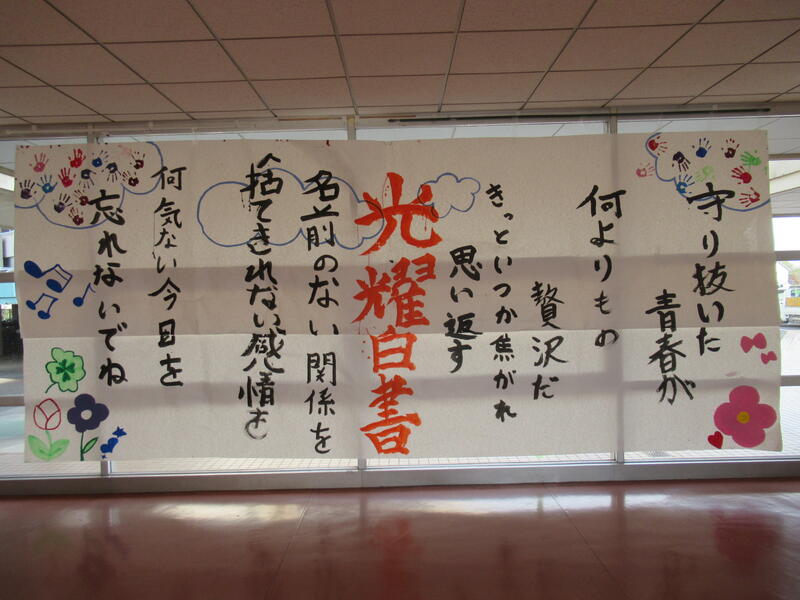 守り抜いた
青春が
何よりもの
贅沢だ
きっといつか焦がれ
思い返す
光耀白書
名前のない関係を
捨てきれない感情を
何気ない今日を
忘れないでね